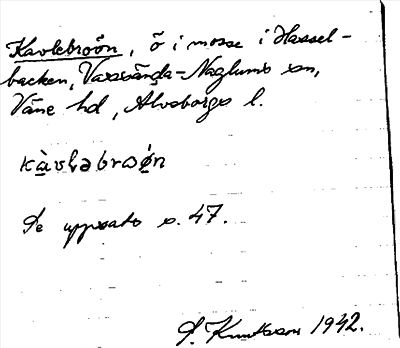 Kavlebroön, ö i mosse i Hassel-
backen, Vassända-Naglums sn,
Väne hd, Älvsborgs l.
kàvləbrωǿn
Se uppsats s. 47.
S. Knutsson 1942.